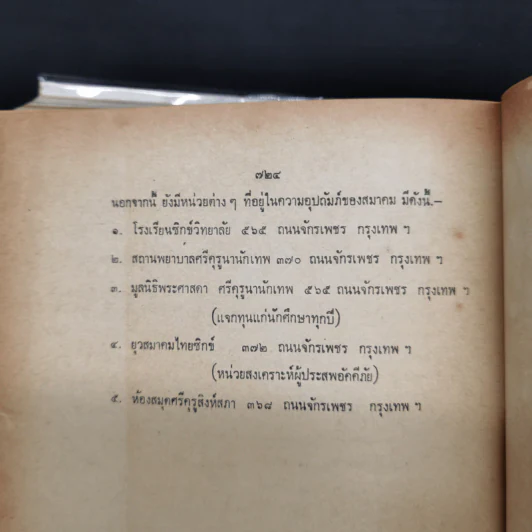 ๗๒๔
นอกจากนี้ ยังมีหน่วยต่าง ๆ ที่อยู่ในความอุปถัมภ์ของสมาคม มีดังนี้.–
๑. โรงเรียนซิกข์วิทยาลัย ๕๖๕ ถนนจักรเพชร กรุงเทพ ฯ
๒. สถานพยาบาลศรีคุรุนานักเทพ ๓๗๐ ถนนจักรเพชร กรุงเทพ ฯ
๓. มูลนิธิพระศาสดา ศรีคุรุนานักเทพ ๕๖๕ ถนนจักรเพชร กรุงเทพ ฯ
(แจกทุนแก่นักศึกษาทุกปี)
๔. ยุวสมาคมไทยซิกข์ ๓๗๒ ถนนจักรเพชร กรุงเทพ ฯ
(หน่วยสงเคราะห์ผู้ประสพอัคคีภัย)
๕. ห้องสมุดศรีคุรุสิงห์สภา ๓๖๘ ถนนจักรเพชร กรุงเทพ ฯ